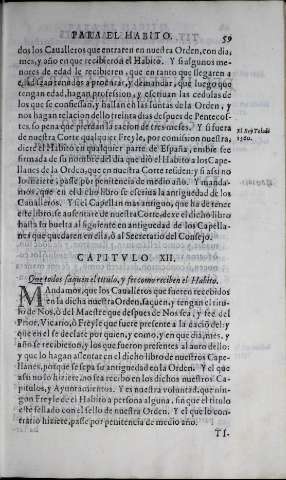 PARA EL HABITO. TIT. 59
dos los Caualleros que entraren en nuestra Orden, con dia,
mes, y año en que recibieron el Habito. Y si algunos me-
nores de edad le recibieren, que en tanto que llegaren a
ella sean tenidos a procurar, y demandar, que luego que
tengan edad, hagan profession, y escriuan las cedulas de
los que se confiessan, y hallan en las juntas de la Orden, y
nos hagan relacion dello treinta dias despues de Pentecos-
tes so pena que pierdan la racion de tres meses. Y si fuera
de nuestra Corte qualquier Freyle, por comission nuestra,
diere el Habito en qualquier parte de España, embie fee
firmada de su nombre del dia que diò el Habito a los Cape-
llanes de la Orden, que en nuestra Corte residen: y si assi no
lo hiziere, passe por penitencia de medio año. Y manda-
mos, que en el dicho libro se escriua la antiguedad de los
Caualleros. Y si el Capellan mas antiguo, que ha de tener
este libro, se ausentare de nuestra Corte, dexe el dicho libro
hasta su buelta al siguiente en antiguedad de los Capella-
nes que quedaren en ella, ò al Secretario del Consejo.
El Rey Toledo
1560.
CAPITVLO XII.
Que todos saquen el titulo, y fee como reciben el Habito.
MAndamos, que los Caualleros que fueren recebidos
en la dicha nuestra Orden, saquen, y tengan el titu-
lo de Nos, ò del Maestre que despues de Nos sea, y fee del
Prior, Vicario, ò Freyle que fuere presente a la dació del: y
que en el se declare por quien, y como, y en que dia, mes, y
año se recibieron, y los que fueron presentes al auto dello:
y que lo hagan assentar en el dicho libro de nuestros Cape-
llanes, porque se sepa su antiguedad en la Orden. Y el que
assi no lo hiziere, no sea recibo en los dichos nuestros Ca-
pitulos, y Ayuntamientos. Y es nuestra voluntad, que nin-
gun Freyle de el Habito a persona alguna, sin que el titulo
esté sellado con el sello de nuestra Orden. Y el que lo con-
trario hiziere, passe por penitencia de medio año.
TI-